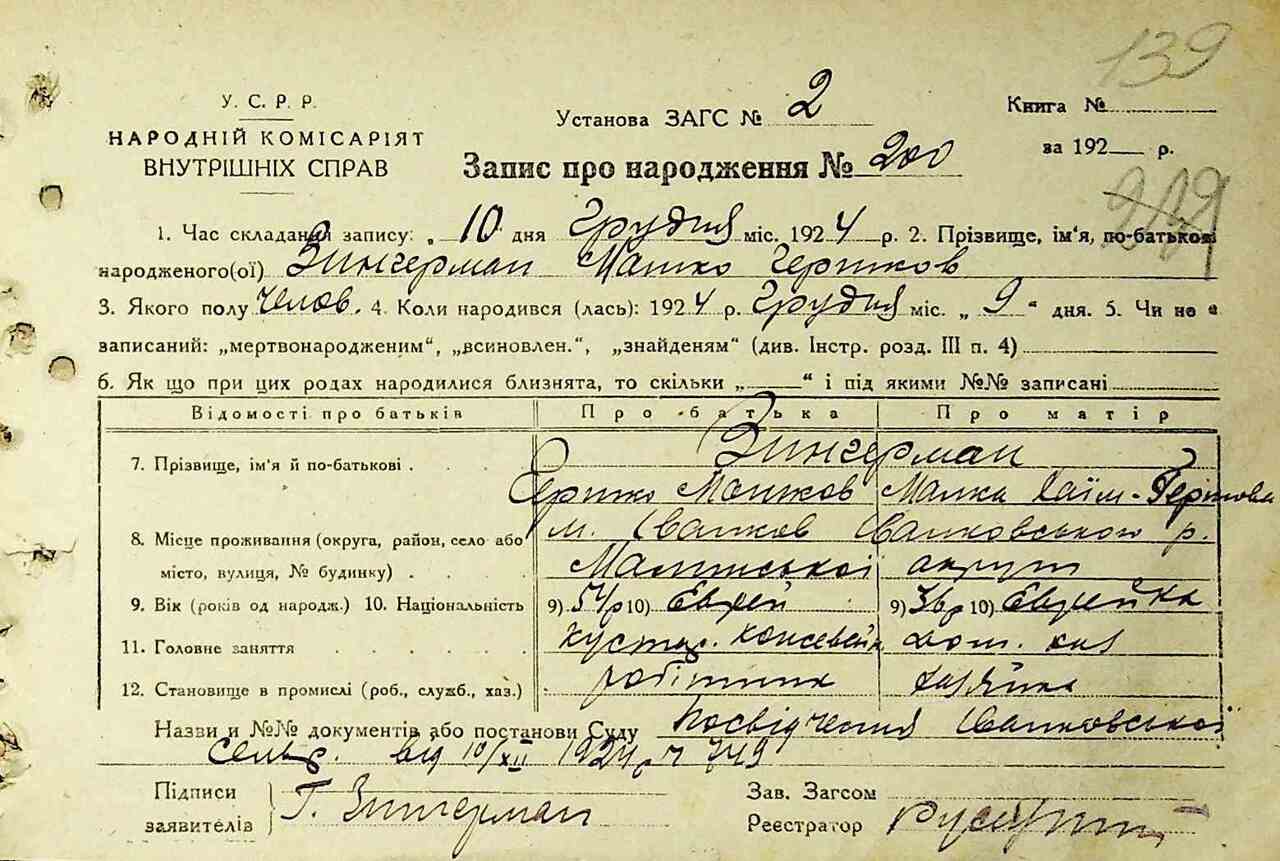 139
У. С. Р. Р.
НАРОДНІЙ КОМІСАРІЯТ
ВНУТРІШНІХ СПРАВ
Установа ЗАГС № 2
Книга №
за 192 р.
Запис про народження № 200
1. Час складання запису: „ 10 дня Грудня міс. 1924 р. 2. Прізвище, ім'я, по-батькові
народженого(ої) Зингерман Мошко Гершков
3. Якого полу челов. 4. Коли народився (лась): 1924 р. Грудня міс. „ 9 “ дня. 5. Чи не є
записаний: „мертвонародженим“, „всиновлен.“, „знайденям“ (див. Інстр. розд. III п. 4)
6. Як що при цих родах народилися близнята, то скільки „ “ і під якими №№ записані
Відомості про батьків Про батька Про матір
7. Прізвище, ім'я й по-батькові Зингерман
Гершко Мошков Малка Хаїм-Гершкова
8. Місце проживання (округа, район, село або м. Іванков Іванковського р.
місто, вулиця, № будинку) округи
9. Вік (років од народж.) 10. Національність 9) 54р 10) Еврей 9) 36р 10) Еврейка
11. Головне заняття кустар.
12. Становище в промислі (роб., служб., хаз.) робітник хазяйка
Назви и №№ документів або постанови Суду Посвідчення Іванковської
сельр. від 10/XII 1924р ч 749
Підписи
заявителів Г. Зингерман
Зав. Загсом
Реєстратор